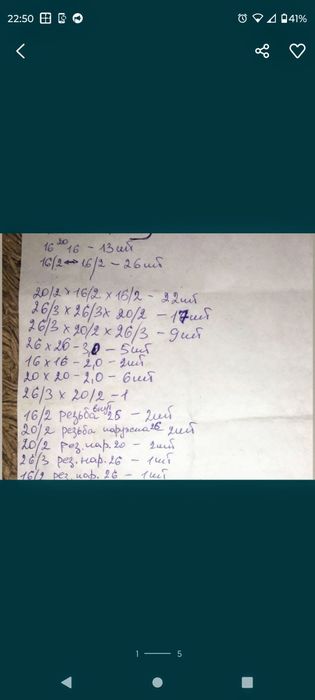 22:50 41%
16 20 16 - 13шт
16/2 ↔ 16/2 - 26шт
20/2 x 16/2 x 16/2 - 22шт
26/3 x 26/3 x 20/2 - 17шт
26/3 x 20/2 x 26/3 - 9шт
26 x 26 - 3,0 - 5шт
16 x 16 - 2,0 - 2шт
20 x 20 - 2,0 - 6шт
26/3 x 20/2 - 1
16/2 резьба внт 25 - 2шт
20/2 резьба наружна 25 2шт
20/2 рез. нар. 20 - 2шт
26/3 рез. нар. 26 - 1шт
16/2 рез. нар. 26 - 1шт
1 5